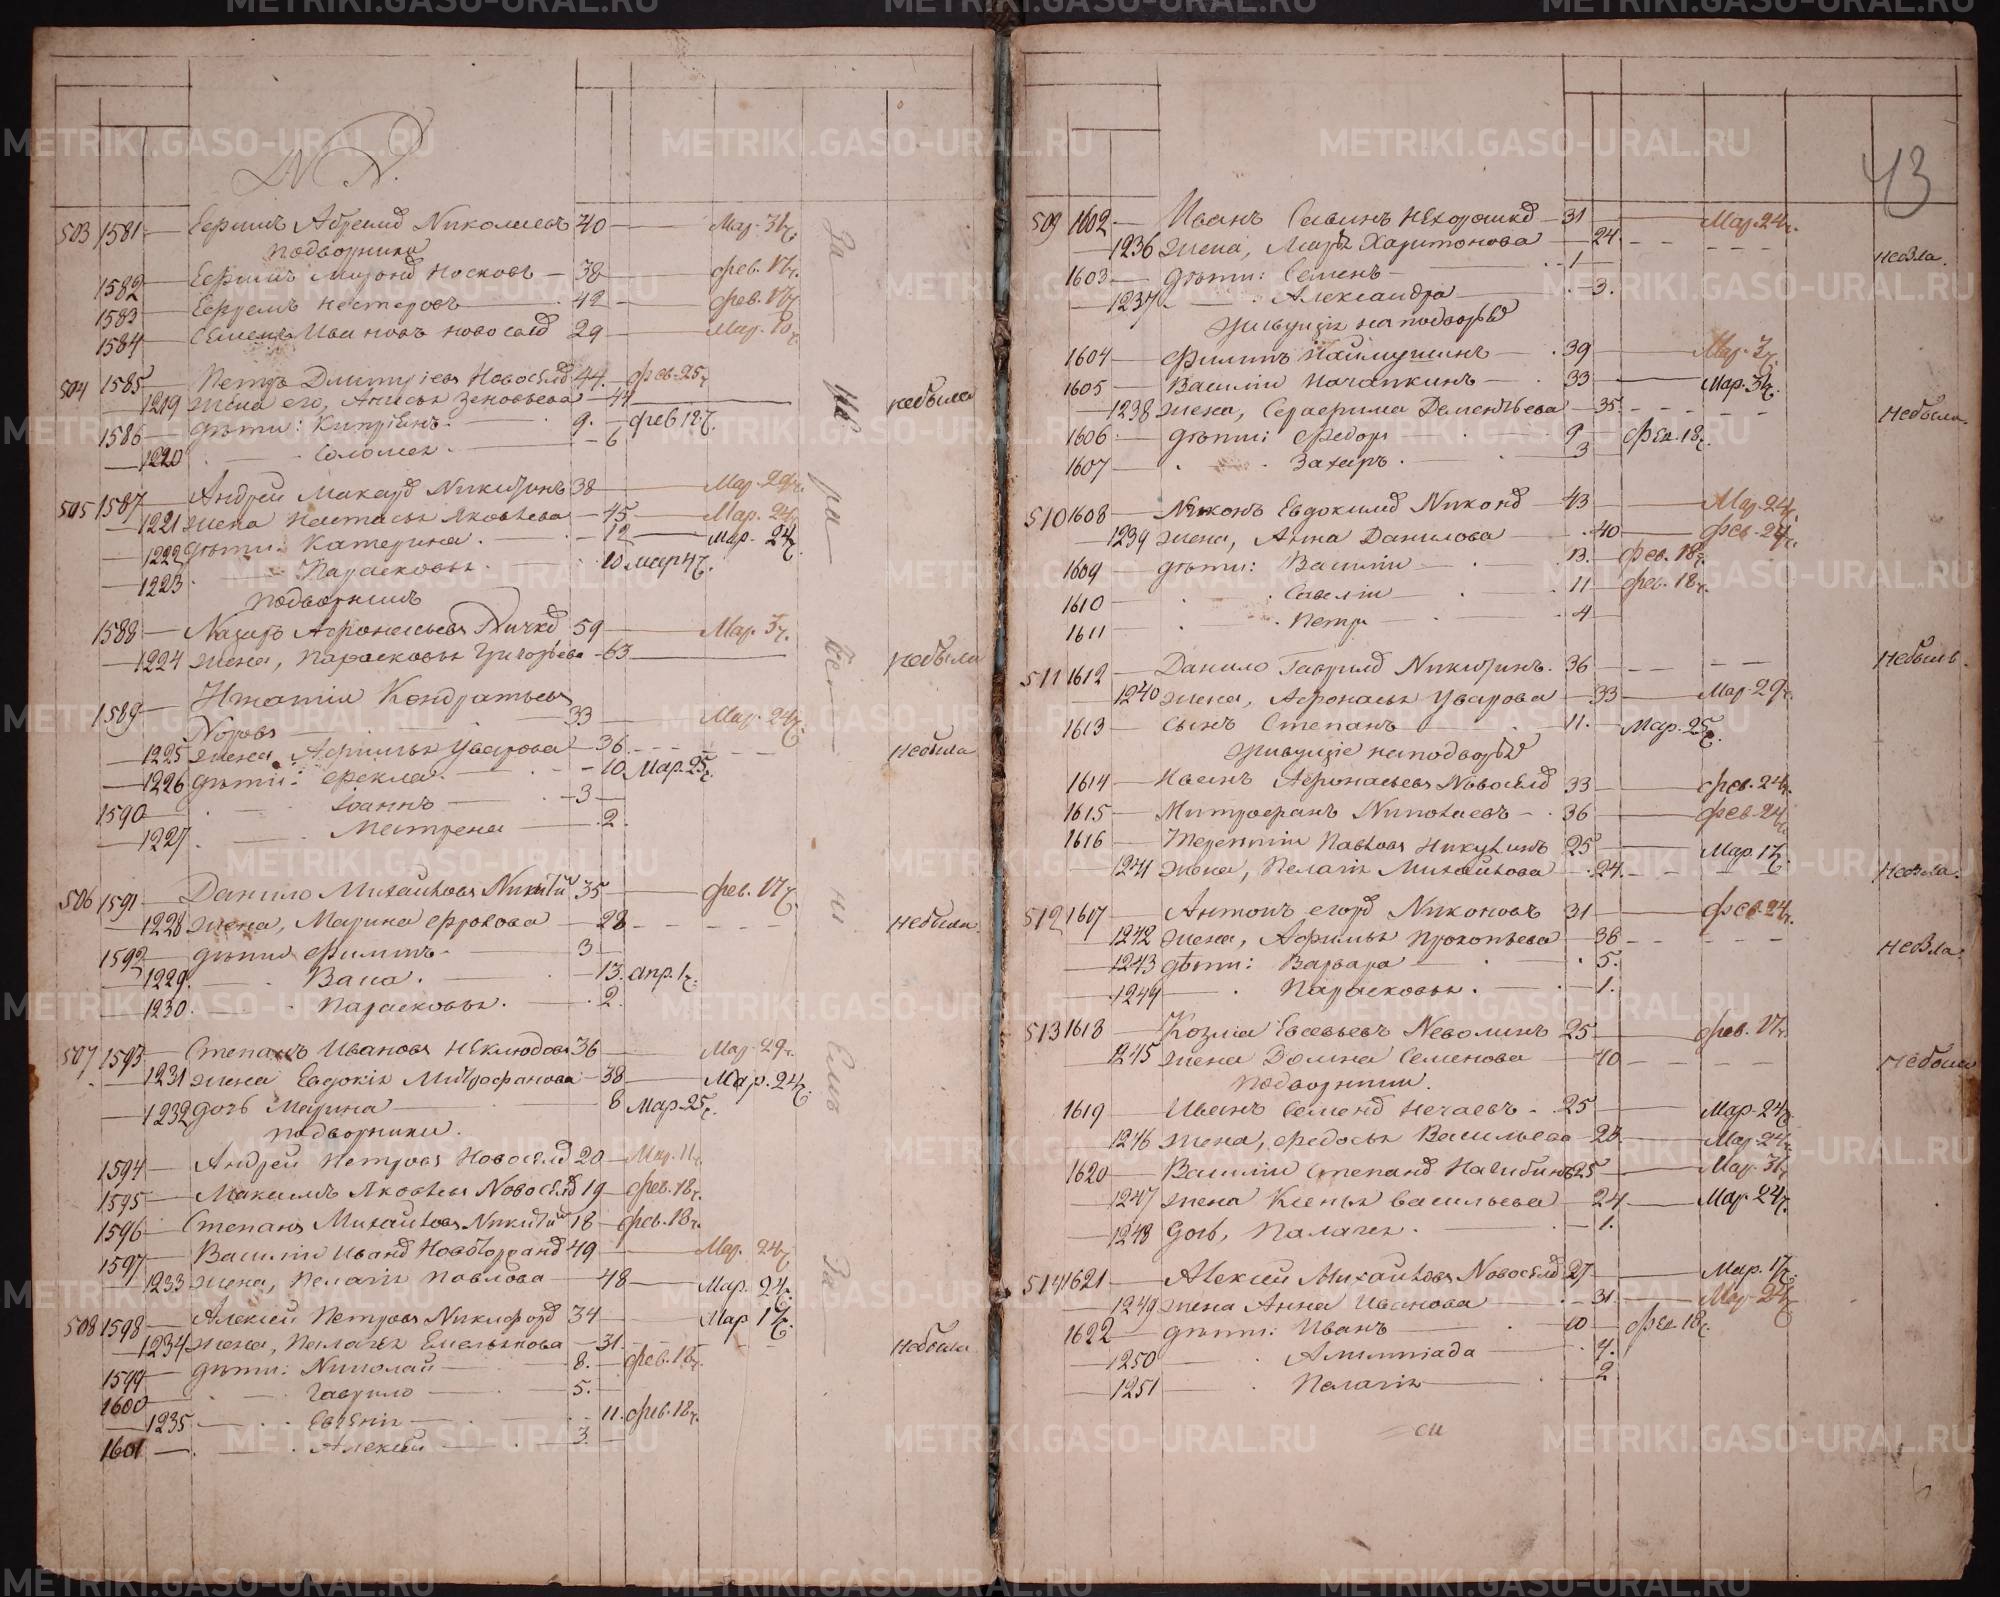 503 1581 — Ефимъ Абрамд Николаевъ 40 — Мар. 31ч.
подворники
1582 — Ефимъ Миронд Носковъ — 38 — фев. 17ч.
1583 — Ефремъ Нестеровъ — 42 — фев. 17ч.
1584 — Семенъ Ивановъ Новоселд 29 — Мар. 10ч.
504 1585 — Петръ Дмитріевъ Новоселд 44 — фев. 25ч.
1219 жена его, Анисья Зеновьева — 44 — небыла
1586 — дѣти: Кипріянъ — 9. — фев 12ч.
1220 Соломея — 6
505 1587 — Андрей Макард Никитинъ 38 — Мар. 29ч.
1221 жена Настасья Яковлева — 45 — Мар. 24ч.
1222 дѣти: Катерина — 12 — Мар. 24ч.
1223 Парасковья 10 Мар 4ч.
подворникъ
1588 — Назаръ Афонасьевъ 59 — Мар. 3ч.
1224 жена, Парасковья Григорьева — 63 — небыла
1589 — Игнатій Кондратьевъ
33 — Мар. 24ч.
1225 жена, Афимья Уварова — 36 — небыла
1226 дѣти: Фекла — 10 Мар. 25ч.
1590 Іоаннъ — 3
1227 Матрена — 2.
506 1591 — Данило Михайловъ 35 — фев. 17ч.
1228 жена, Марина Фролова — 28 — небыла
1592 — дѣти Филипъ — 3
1229 Васа — 13. апр. 1ч.
1230 Парасковья — 2.
507 1593 — Степанъ Ивановъ Неклюдовъ 36 — Мар. 29ч.
1231 жена Евдокія Митрофанова — 38 — Мар. 24ч.
1232 дочь Марина — 8 Мар. 25ч.
подворники
1594 — Андрей Петровъ Новоселд 20 — Мар. 11ч.
1595 — Максимъ Яковлевъ Новоселд 19 — фев. 18ч.
1596 — Степанъ Михайловъ 18 — фев. 18ч.
1597 — Василій Иванд 49 — Мар. 24ч
1233 жена, Пелагія Павлова — 48 — Мар. 24ч.
508 1598 — Алексей Петровъ Никифорд 34 — Мар 17ч.
1234 жена, Палагья Емельянова — 31. — небыла
1599 — дѣти: Николай — 8. — фев. 18ч.
1600 Гаврило — 5.
1235 Евгенія — 11. фев. 18ч.
1601 Алексѣй — 3.
43
509 1602 — Иванъ Савинъ Нехорошкд — 31 — Мар. 24ч.
1236 жена, Марья Харитонова — 24 — небла.
1603 — дѣти: Семенъ — 1
1237 Александра — 3.
живущія на подворьѣ
1604 — Филипъ Наймушинъ — 39 — Мар. 3ч.
1605 — Василій Почапкинъ — 33 — Мар. 31ч.
1238 жена, Серафима Дементьева — 35. — небыла.
1606 — дѣти: Федоръ — 9 — Фев. 18ч.
1607 — Захаръ — 3
510 1608 — Никонъ Евдокимд Никонд — 43 — Мар. 24ч.
1239 жена, Анна Данилова — 40 — фев. 24ч.
1609 — дѣти: Василій — 13. фев. 18ч.
1610 — Савелій — 11 — фев. 18ч.
1611 — Петръ — 4
511 1612 — Данило Гаврилд Никитинъ. 36 — небылъ.
1240 жена, Афонасья Уварова — 33 — Мар. 29ч.
1613 — сынъ Степанъ — 11. — Мар. 25ч.
живущіе на подворьѣ
1614 — Иванъ Афонасьевъ Новоселд 33 — фев. 24ч.
1615 — Митрофанъ Николаевъ — 36 — фев. 24ч.
1616 — Терентій Павловъ Никулинъ 25 — Мар. 17ч.
1241 жена, Пелагія Михайлова — 24 — небла.
512 1617 — Антонъ Егорд Никоновъ 31 — фев. 24ч.
1242 жена, Афимья Прокопьева — 38 — небла.
1243 дѣти: Варвара — 5.
1244 Парасковья — 1.
513 1618 — Козма Евсевьевъ Неволинъ 25 — фев. 17ч.
1245 жена Домна Семенова — 40 — небыла
подворники.
1619 — Иванъ Семенд Нечаевъ — 25 — Мар. 24ч.
1246 жена, Федосья Васильева — 23 — Мар. 24ч.
1620 — Василій Степанд 25 — Мар. 31ч.
1247 жена Ксенья Васильева — 24 — Мар. 24ч.
1248 дочь, Палагея — 1.
514 1621 — Алексей Михайловъ Новоселд 27 — Мар. 17ч.
1249 жена Анна Иванова — 31 — Мар. 24ч
1622 — дѣти: Иванъ — 10 — фев. 18ч.
1250 Алимпіада — 4.
1251 Палагія — 2